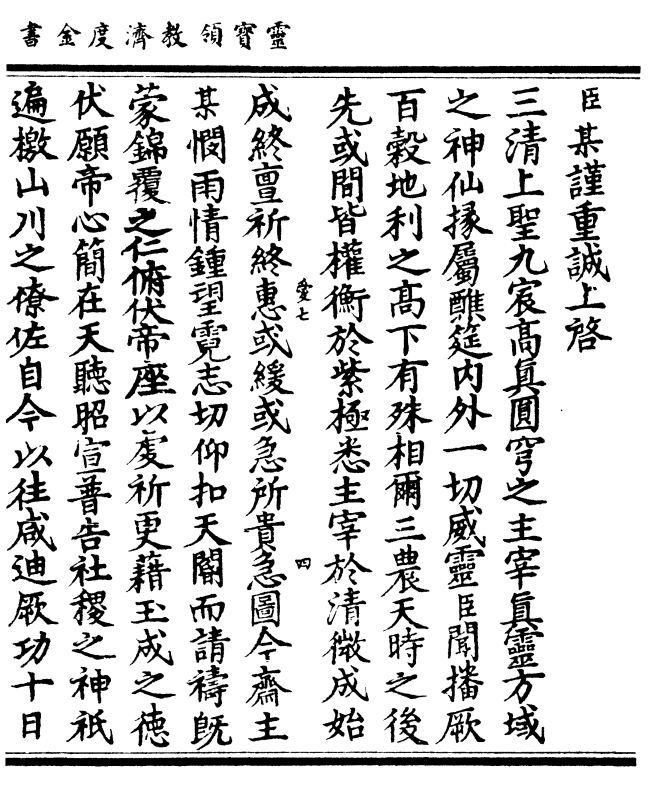 靈寶領教濟度金書
臣某謹重誠上啓
三清上聖九宸高眞圓穹之主宰眞靈方域
之神仙掾屬醮筵內外一切威靈臣聞播厥
百穀地利之高下有殊相爾三農天時之後
先或間皆權衡於紫極悉主宰於清微成始
愛七
四
成終亶祈終惠或緩或急所貴急圖今齋主
某憫雨情鍾望霓志切仰扣天閽而請禱旣
蒙錦覆之仁俯伏帝座以虔祈更藉玉成之德
伏願帝心簡在天聽昭宣普告社稷之神祇
遍檄山川之僚佐自今以往咸迪厥功十日